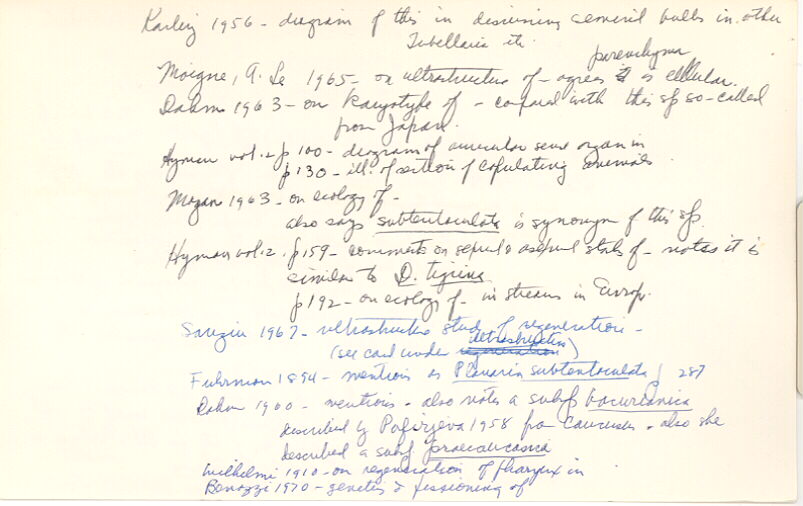 Karling 1956 - diagram of this in discussing several bulbs in other
Tubellaria etc.
parenchyma
Moigne, A. Le 1965 - on ultrastructure of - agrees it is cellular.
Dahm 1963 - on karyotype of - compared with this sp so-called
from Japan.
Hyman vol. 2 p 100 - diagram of auricular sense organ in
p 130 - ill. of section of copulating animals.
1963 - on ecology of -
also says subtentaculata is synonym of this sp.
Hyman vol. 2. p 159 - comments on sexual & asexual stats of - notes it is
similar to D. tigrina
p 192 - on ecology of - in streams in Europ.
1967 - ultrastructure study of regeneration -
ultrastructure
(see card under regeneration)
Fuhrman 1894 - mentions as Planaria subtentaculata p 287
Dahm 1960 - mentions - also notes a subsp
described by 1958 from Caucasus - also she
described a subsp praecaucasica
Wilhelmi 1910 - on regeneration of pharynx in
Benazzi 1970 - genetics & fissioning of